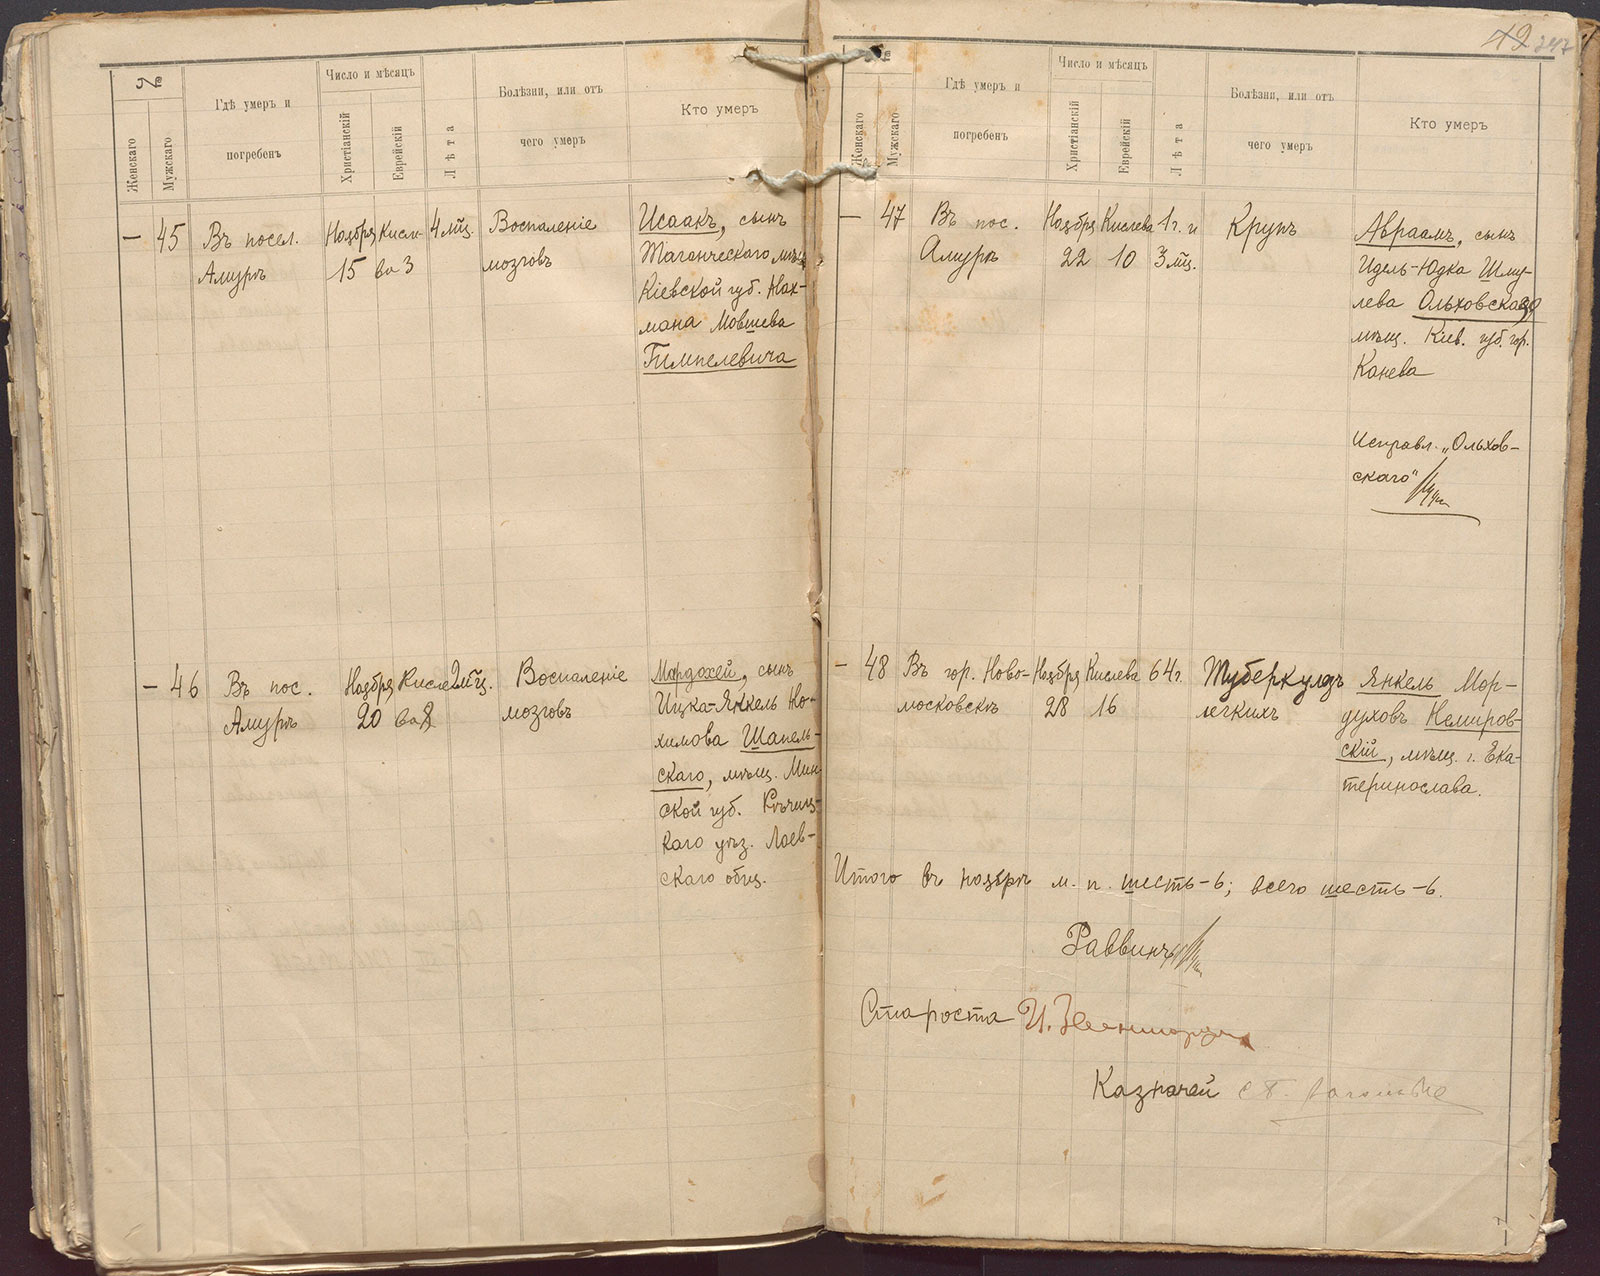 42 247
№
Женскаго
Мужскаго
Гдѣ умеръ и
погребенъ
Число и мѣсяцъ
Христіанскій
Еврейскій
Лѣта
Болѣзни, или отъ
чего умеръ
Кто умеръ
— 45
Въ посел.
Амурѣ
Ноября
15
Кисле-
ва 3
4 мѣс.
Воспаленіе
мозговъ
Исаакъ, сынъ
Таганческаго мѣщ.
Кіевской губ. Нах-
мана Мовшева
Гимпелевича
— 46
Въ пос.
Амурѣ
Ноября
20
Кисле-
ва 8
2 мѣс.
Воспаленіе
мозговъ
Мордохей, сынъ
Ицка-Янкель Но-
химова Шапель-
скаго, мѣщ. Мин-
ской губ. Рѣчиц-
каго уѣз. Лоев-
скаго общ.
№
Женскаго
Мужскаго
Гдѣ умеръ и
погребенъ
Число и мѣсяцъ
Христіанскій
Еврейскій
Лѣта
Болѣзни, или отъ
чего умеръ
Кто умеръ
— 47
Въ пос.
Амурѣ
Ноября
22
Кислева
10
1 г. и
3 мѣс.
Крупъ
Авраамъ, сынъ
Идель-Юдка Шму-
лева Ольховскаго,
мѣщ. Кіев. губ. гор.
Канева
Исправл. „Ольхов-
скаго"
— 48
Въ гор. Ново-
московскѣ
Ноября
28
Кислева
16
64 г.
Туберкулезъ
легкихъ
Янкель Мор-
духовъ Немиров-
скій, мѣщ. г. Ека-
теринослава.
Итого въ ноябрѣ м. п. шесть-6; всего шесть-6.
Раввинъ
Староста И.
Казначей